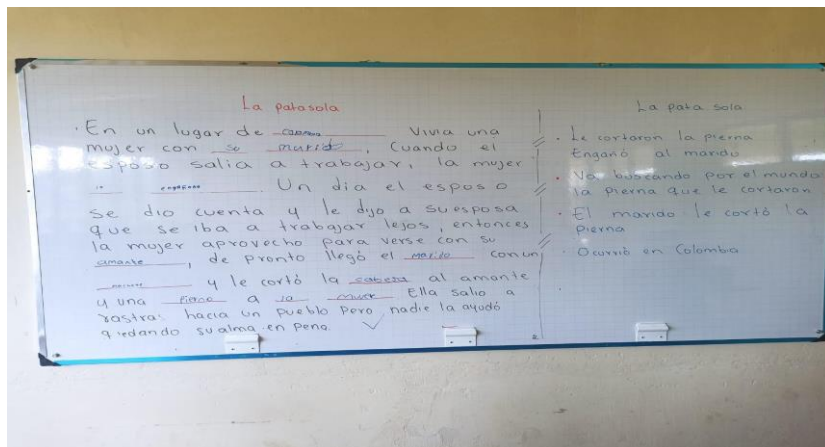 La patasola
. En un lugar de Vivia una
mujer con su marido, Cuando el
esposo salia a trabajar, la mujer
engañaba. Un dia el esposo
se dio cuenta y le dijo a su esposa
que se iba a trabajar lejos, entonces
la mujer aprovecho para verse con su
amante, de pronto llegó el marido con un
y le cortó la cabeza al amante
y una Pierna a la mujer Ella salio a
rastras hacia un pueblo pero nadie la ayudó
quedando su alma en pena.
2
La pata sola
. Le cortaron la pierna
Engañó al marido
. Va buscando por el mundo
la pierna que le cortaron
. El marido le cortó la
pierna
. Ocurrió en Colombia